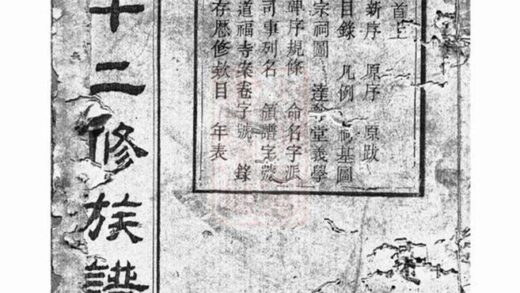 首上
新序 原序 原跋
目錄 凡例 基圖
宗祠圖 達 堂義學
碑序規條 命名字派
司事列名 領譜字號
道福寺案卷字號 錄
存歷修 目 年表
十二修族譜